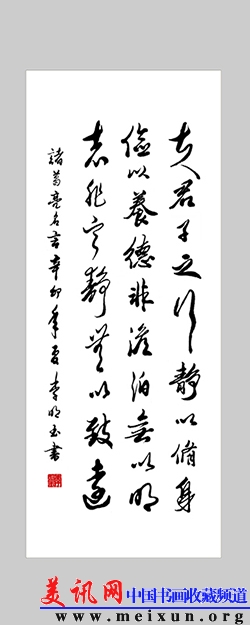 夫君子之行靜以脩身
儉以養德非澹泊無以明
志非寧靜無以致遠
諸葛亮名言辛卯年夏李明玉書
美讯网 中国书画收藏频道
www.meixun.org